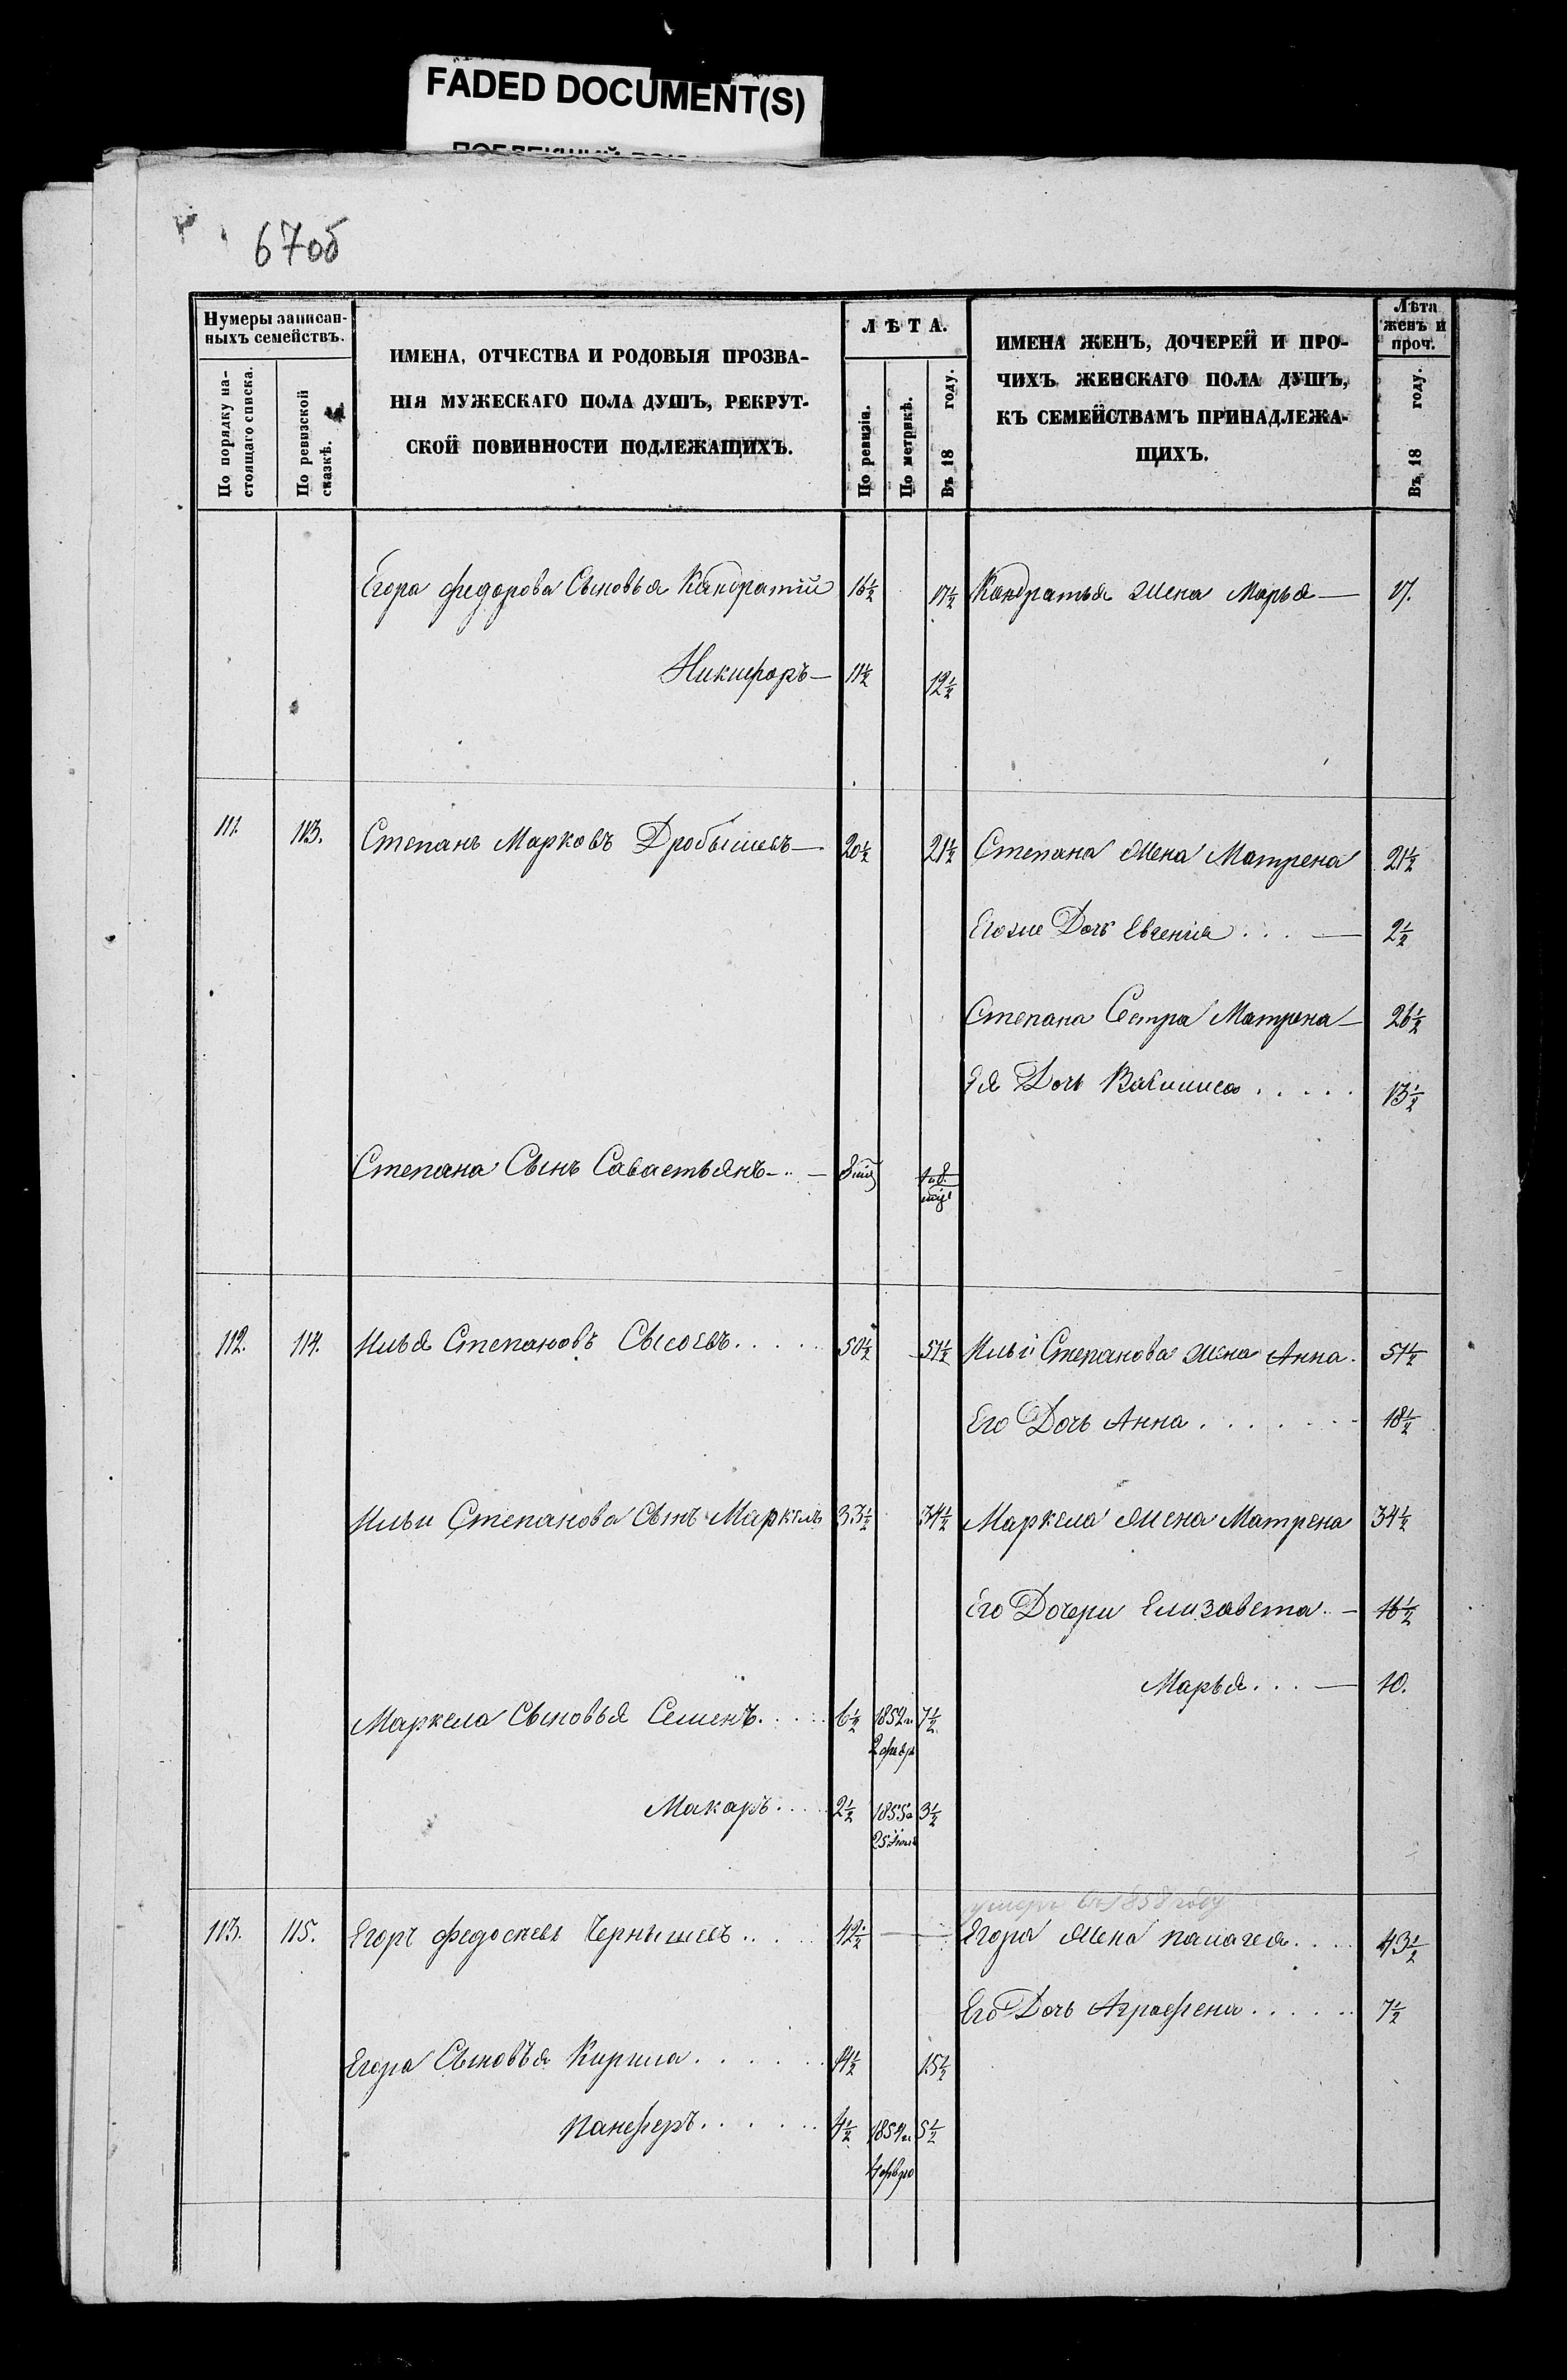 FADED DOCUMENT(S)
67об
Нумеры записан-
ныхъ семействъ.
По порядку на-
стоящаго списка.
По ревизской
сказкѣ.
ИМЕНА, ОТЧЕСТВА И РОДОВЫЯ ПРОЗВА-
НІЯ МУЖЕСКАГО ПОЛА ДУШЪ, РЕКРУТ-
СКОЙ ПОВИННОСТИ ПОДЛЕЖАЩИХЪ.
ЛѢТА.
По ревизіи.
По метрикѣ.
Въ 18 году.
ИМЕНА ЖЕНЪ, ДОЧЕРЕЙ И ПРО-
ЧИХЪ ЖЕНСКАГО ПОЛА ДУШЪ,
КЪ СЕМЕЙСТВАМЪ ПРИНАДЛЕЖА-
ЩИХЪ.
Лѣта
женъ и
проч.
Въ 18 году.
Егора Федорова Сыновья Кандратій 16½ 17½ Кандратья жена Марья — 17.
Никифоръ — 11½ 12½
111. 113. Степанъ Марковъ Дробышевъ — 20½ 21½ Степана жена Матрена 21½
Егоже Дочь Евгенія . . . — 2½
Степана Сестра Матрена — 26½
Ея Дочь . . . . . 13½
Степана Сынъ Савастьянъ — 8
112. 114. Илья Степановъ Сысоевъ . . . . . 50½ 51½ Ильи Степанова жена Анна . 51½
Его Дочь Анна . . . . . . . 18½
Ильи Степанова Сынъ Маркелъ 33½ 34½ Маркела жена Матрена 34½
Его Дочери Елизавета . — 16½
Марья . . . — 10.
Маркела Сыновья Семенъ . . . . . 6½ 7½
2 февр
Макаръ . . . . 2½ 1855 3½
умеръ въ 1858 году
113. 115. Егоръ Федосѣевъ Чернышевъ . . . . 42½ — — Егора жена Палагея . . . . 43½
Его Дочь Аграфена . . . . . . 7½
Егора Сыновья Кирила . . . . . . . 14½ 15½
Панферъ . . . . . . 4½ 1854 5½